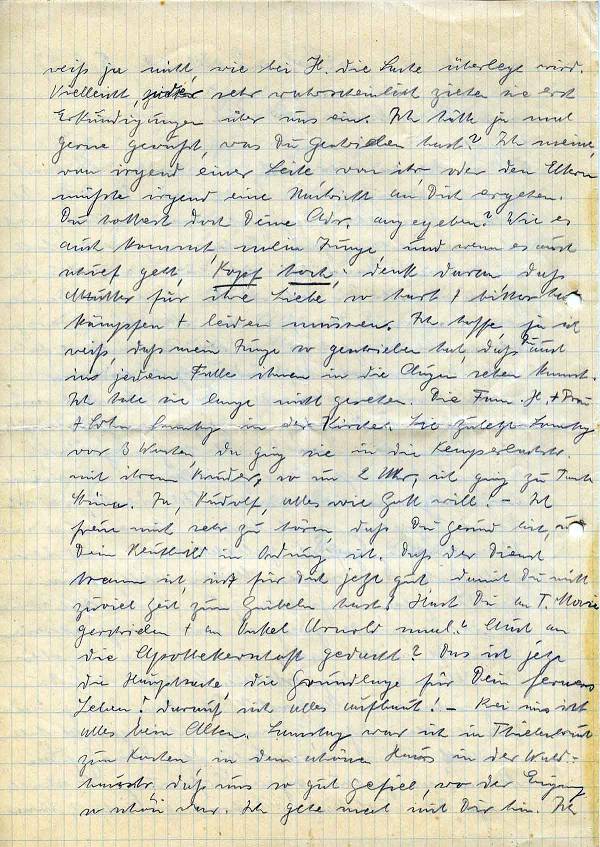 weiß ja nicht, wie bei H. die Sache überlegt wird.
Vielleicht, sehr wahrscheinlich ziehen sie erst
Erkundigungen über uns ein. Ich hätte ja mal
gerne gewußt, was Du geschrieben hast? Ich meine,
von irgend einer Seite von ihr, oder den Eltern
müßte irgend eine Nachricht an Dich ergehen.
Du hattest doch Deine Adr. angegeben? Wie es
auch kommt, mein Junge, und wenn es auch
schief geht, Kopf hoch, denk daran daß
Mütter für ihre Liebe so hart + bitter
kämpfen + leiden müssen. Ich hoffe, ja ich
weiß, daß mein Junge so geschrieben hat, daß Du auch
in jedem Falle ihnen in die Augen sehen kannst.
Ich habe sie lange nicht gesehen. Die Fam. H. + Frau
+ Sohn Sonntag in der Kirche. Sie zuletzt Sonntag
vor 3 Wochen, da ging sie in die
mit ihrem Bruder, so um 2 Uhr, ich ging zu Tante
Ja, Rudolf, alles wie Gott will! – Ich
freue mich sehr zu hören, daß Du gesund bist, und
Dein in Ordnung ist. Daß der Dienst
ist, ist für Dich jetzt gut damit Du nicht
zuviel Zeit zum Grübeln hast! Hast Du an T. Marie
geschrieben + an Onkel Arnold mal? Auch an
die Apothekerschaft gedacht? Das ist jetzt
die Hauptsache, die Grundlage für Dein ferneres
Leben! darauf sich alles aufbaut! – Bei uns ist
alles beim Alten. Samstag war ich in
zum in dem schönen Haus in der Wald-
daß uns so gut gefiel, wo der Eingang
so schön war. Ich gehe mal mit Dir hin. Ich